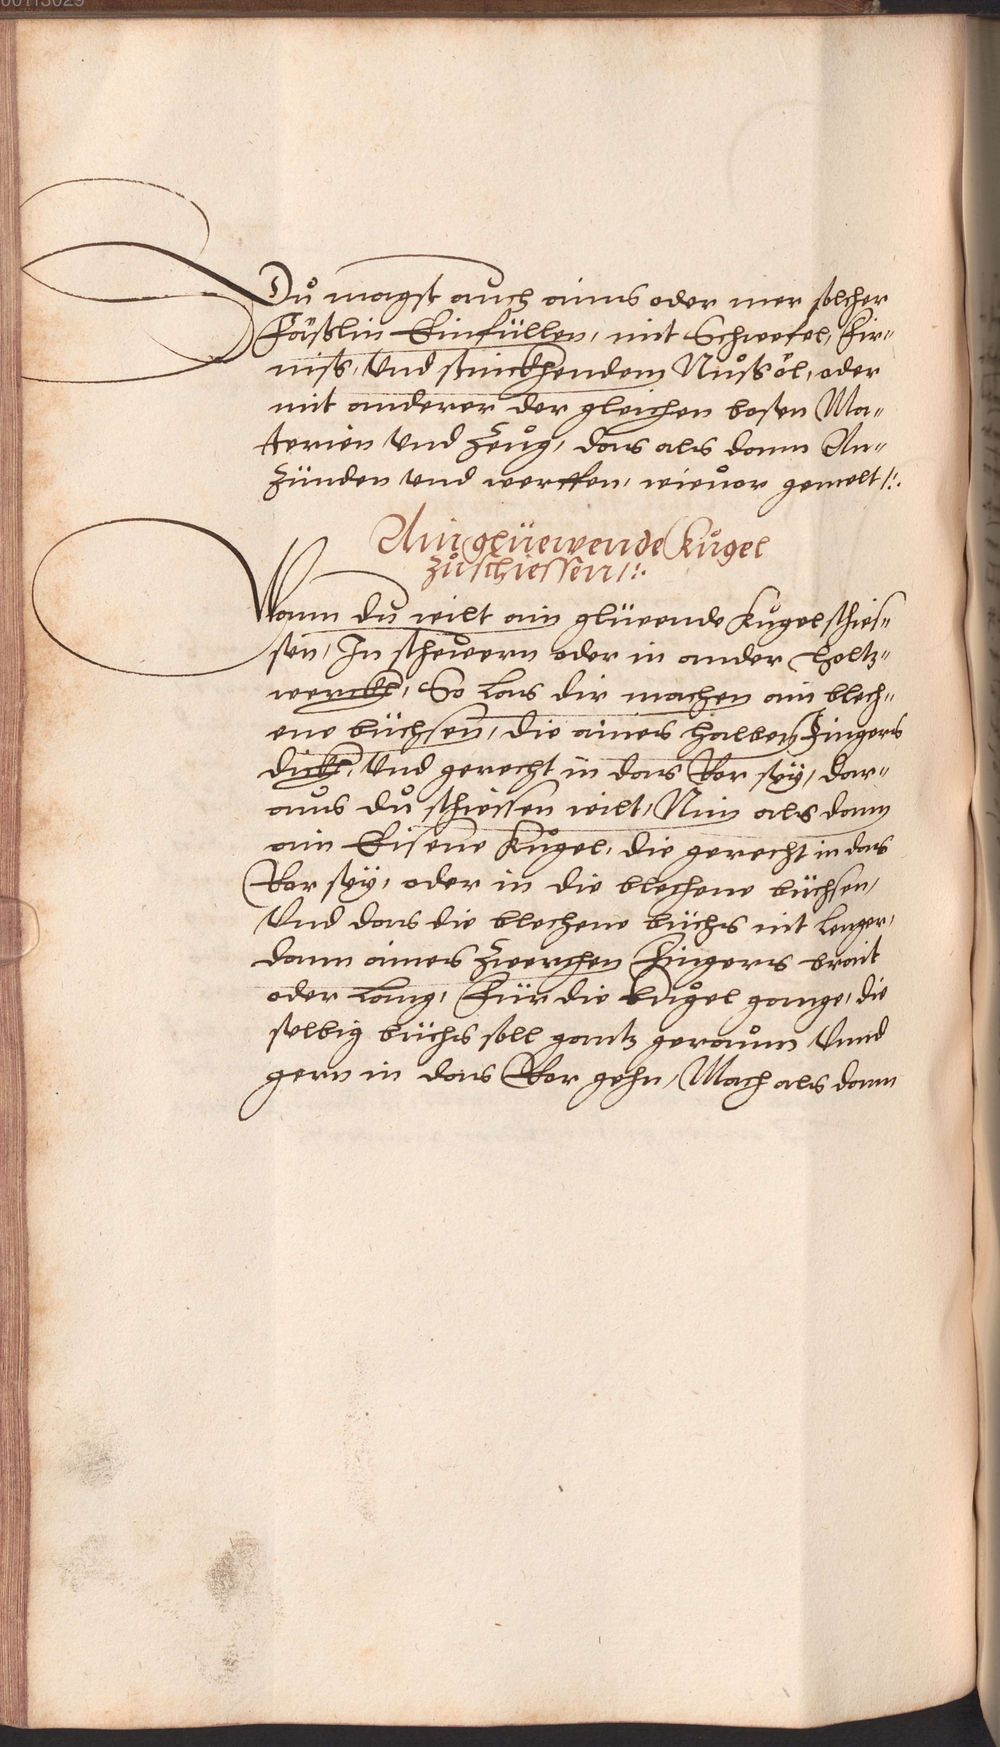 00113029
Dů magst auch ains oder mer solcher
Fäßlin Einfüllen, mit Schwefel, Fir„
niß, Und stinckhendem Nůßöl, oder
mit anderer der gleichen bosen Ma„
terien Und Zeůg, das als dann An„
Zünden Und werffen, wieuor gemelt /:.
Ain glüewende Kůgel
zůschiessen /:.
Wann dů wilt ain glüende Kůgel schies„
sen, In scheẅern oder in ander holtz„
werckh, So Las dir machen ain blech„
ene büchsen, die aines halben Fingers
dickh, Und gerecht in das Ror seÿ, dar„
aůs dů schiessen wilt, Nim als dann
ain Eisene Kůgel, die gerecht in das
Ror seÿ, oder in die blechene büchsen,
Und das die blechene büchs nit Lenger,
dann aines Zwerchen Fingers brait
oder Lang, Für die kůgel gange, die
selbig büchs soll gantz geraům Unnd
gern in das Ror gehn, Mach als dann